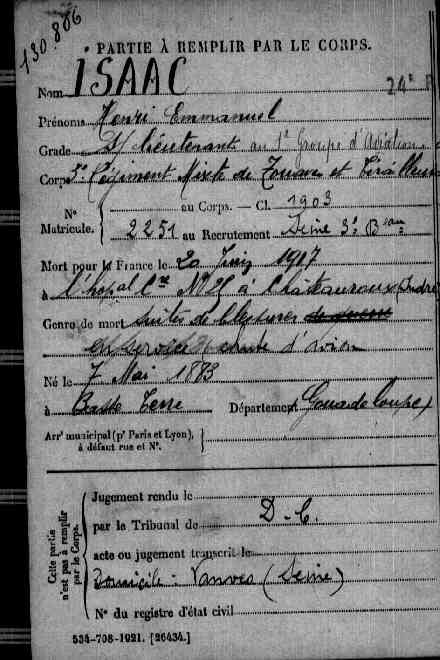 130.806
PARTIE À REMPLIR PAR LE CORPS.
Nom ISAAC
Prénoms Henri Emmanuel
Grade S/ Lieutenant au 1er Groupe d'Aviation
Corps 3e Régiment Mixte de Zouaves et Tirailleurs
No au Corps. — Cl. 1903
Matricule. 2251 au Recrutement Seine 3e Beau
Mort pour la France le 20 Juin 1917
à l'hôpal Cre No 25 à Châteauroux (Indre)
Genre de mort suites de blessures de guerre
en service chute d'avion
Né le 7 Mai 1883
à Basse Terre Département Gouadeloupe
Arrt municipal (pr Paris et Lyon),
à défaut rue et No.
Cette partie
n'est pas à remplir
par le Corps.
Jugement rendu le
par le Tribunal de D-C.
acte ou jugement transcrit le
Domicile - Vanves (Seine)
No du registre d'état civil
534-708-1921. [26434.]